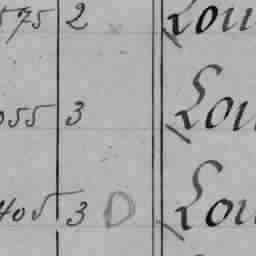 575 2 Lou
055 3 Lou
405 3 D Lou